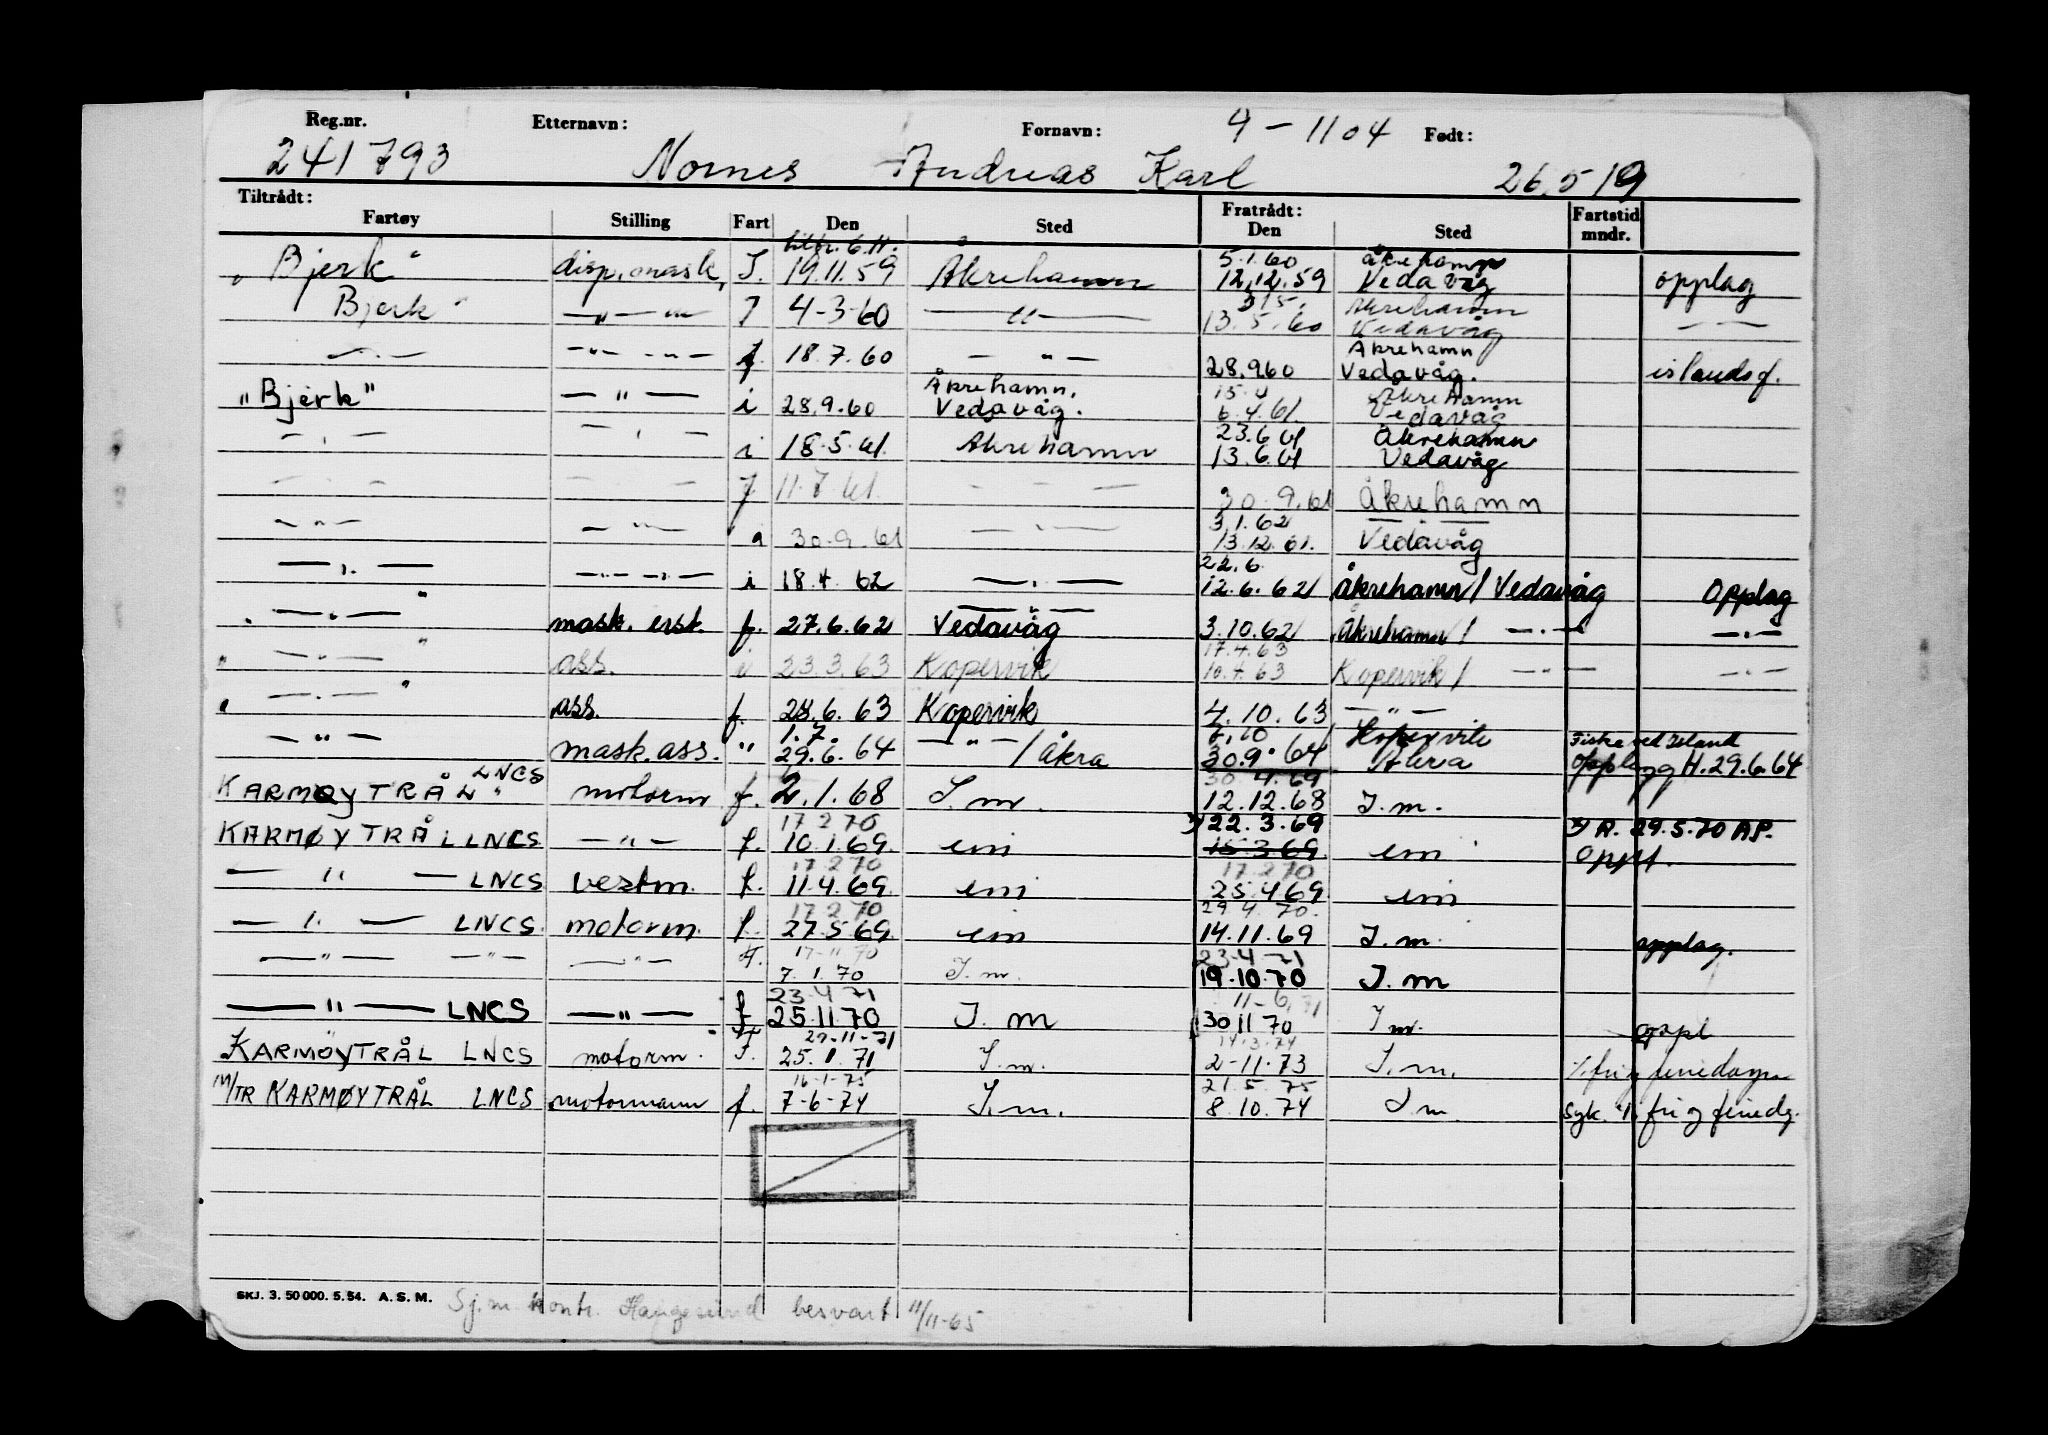 Reg.nr. Etternavn: Fornavn: 9-1104 Født:
241793 Nornes Andreas Karl 26.5 19
Tiltrådt: Fratrådt:
Fartøy Stilling Fart Den Sted Den Sted Fartstid mndr.
6.11. 5.1.60 Åkrehamn
"Bjerk" disp. mask. I. 19.11.59 Åkrehamn 12.12.59 Vedavåg opplag
Åkrehamn
Bjerk " — " — " — I 4-3-60 — " — 13.5.60 Vedavåg — —
Åkrehamn
— " — — " — " — f. 18.7.60 — " — 28.9.60 Vedavåg. islandsf.
Åkrehamn. 15.4 Åkrehamn
"Bjerk" — " — i 28.9.60 Vedavåg. 6.4.61 Vedavåg
23.6.61 Åkrehamn
— " — — " — i 18.5.61. Åkrehamn 13.6.61 Vedavåg
— " — — " — f 11.7.61. — " — 30.9.61 Åkrehamn
3.1.62 — " —
— " — — " — 30.9.61 — " — 13.12.61. Vedavåg
22.6
— " — — " — " — i 18.4.62 — " — 12.6.62 Åkrehamn / Vedavåg Opplag
— " —
" — " — " mask. erst. f. 27.6.62 Vedavåg 3.10.62 Åkrehamn / — " — — " —
17.4.63
" — " — " ass. i 23.3.63 Kopervik 10.4.63 Kopervik / — " — — " —
" — " — " ass. f. 28.6.63 Kopervik 4.10.63 — " —
1.7. 7.10 Kopervik Fiske ved Island
— " — mask.ass. " 29.6.64 — " — / Åkra 30.9.64 Åkra Opplagg H.29.6.64
LNCS 30.4.69
KARMØYTRÅL " motorm f. 2.1.68 I.m. 12.12.68 I.m.
17 2 70 x) 22.3.69 x) R. 29.5.70 AP.
KARMØYTRÅL LNCS — " — f. 10.1.69. im 15.3.69 im oppl.
17 2 70 17 2 70
— " — LNCS vestm. f. 11.4.69. im 25.4.69 im
17 2 70 29.4.70.
— " — LNCS. motorm. f. 27.5.69. im 14.11.69 I.m. opplag.
17-11 70 23-4-71
— " — — " — — " — F. 7.1.70 I.m. 19.10.70 I.m
23-4 71 11-6.71
— " — LNCS — " — f 25.11.70 I.m 30 11 70 I m. oppl
29-11-71 14-3-74
KARMØYTRÅL LNCS motorm. F. 25.1.71 I.m. 2-11-73 I.m. %. fri og feriedager
16-1-75 21.5.75
M/TR KARMØYTRÅL LNCS motormann f. 7-6-74 I.m. 8.10.74 I m. syk. %. fri og feriedg.
SKJ. 3. 50 000. 5.54. A. S. M. Sj.m.kontr. Haugesund besvart 11/11-65